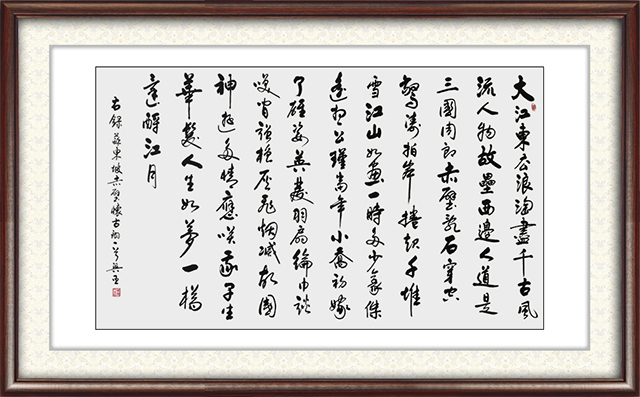 大江東去浪淘盡千古風
流人物故壘西邊人道是
三國周郎赤壁亂石穿空
驚濤拍岸捲起千堆
雪江山如畫一時多少豪傑
遙想公瑾當年小喬初嫁
了雄姿英發羽扇綸巾談
笑間灰飛烟滅故國
神遊多情應笑我早生
華髮人生如夢一樽
還酹江月
右錄蘇東坡赤壁懷古詞一首